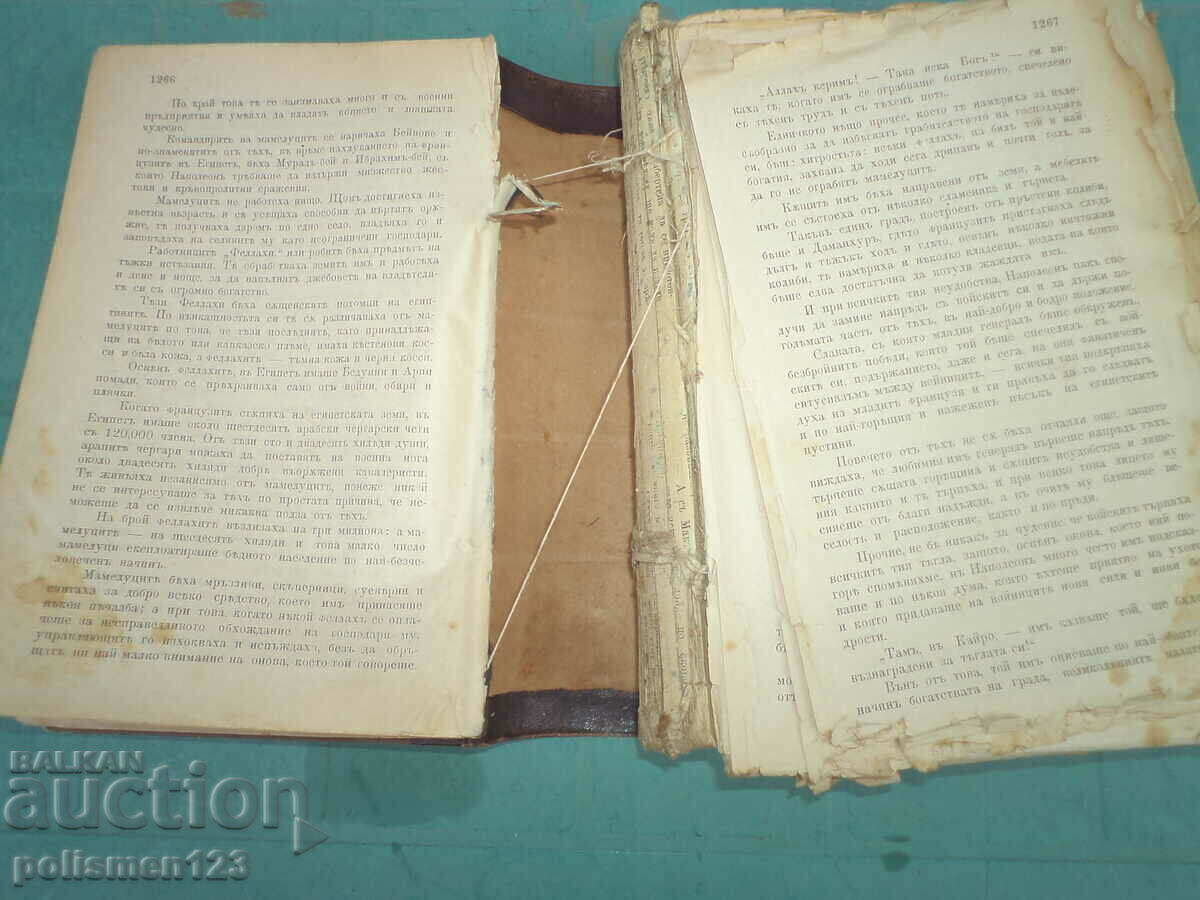 1266
По край това тѣ се занимаваха много и съ военни
предприятия и умѣяха да владатъ копието и
чудесно.
Командирите на мамелуцитѣ се наричаха Бейнове и
по-знаменититѣ отъ тѣхъ, въ време нахлуванието на фран-
цузитѣ въ Египетъ, бѣха Мурадъ-бей и Ибрахимъ-бей, съ
които Наполеонъ трѣбваше да издържи множество жес-
токи и кръвопролитни сражения.
Мамелуцитѣ не работеха нищо. Щомъ достигнеха из-
вѣстна възрасть и се усѣщаха способни да държтъ орж-
жие, тѣ получаваха даромъ по едно село, владѣяха го и
заповѣдаха на селянитѣ му като неограничени господари.
Работницитѣ „Феллахи“ или робитѣ бѣха предметъ на
тѣжки истезания. Тѣ обработваха земитѣ имъ и работѣха
и дене и ноще, за да напълнятъ джебоветѣ на владѣтели-
тѣ си съ огромно богатство.
Тѣзи Феллахи бѣха същенскитѣ потомци на египт-
янитѣ. По външностьта си тѣ се различаваха отъ ма-
мелуцитѣ по това, че тѣзи послѣднитѣ, като принадлежа-
щи на бѣлото или кавказско племе, имаха кѣстеняви кос-
си и бѣла кожа, а феллахитѣ — тъмна кожа и черни косси.
Освенъ феллахитѣ, въ Египетъ имаше Бедуини и Арпи
номади, които се прѣхранваха само отъ войни, обири и
плячки.
Когато французитѣ стѫпиха на египетската земя, въ
Египетъ имаше около шестдесять арабски чергарски чети
съ 120,000 члена. Отъ тѣзи сто и двадесять хиляди души,
арапитѣ чергари можаха да поставятъ на военна нога
около двадесять хиляди добрѣ въоржжени кавалеристи.
Тѣ живѣяха независимо отъ мамелуцитѣ, понеже никой
не се интересуваше за тѣхъ по простата причина, че не-
можеше да се извлѣче никаква полза отъ тѣхъ.
На брой феллахитѣ възлизаха на три милиона: а ма-
мелуцитѣ — на шесдесять хиляди и това малко число
мамелуци експлоатираше бѣдното население по най-безчо-
ловеченъ начинъ.
Мамелуцитѣ бѣха мръзливи, скъперници, суевѣрни и
считаха за добро всѣко срѣдство, което имъ принасяше
нѣкоя печалба; а при това, когато нѣкой феллахъ се опла-
чеше за несправедливото обхождание на господаря му,
управляющитѣ го нахокваха и испѫждахъ, безъ да обръ-
щатъ ни най малко внимание на онова, което той говореше.
1267
„Аллахъ керимъ! — Така иска Богъ!“ — си ви-
каха тѣ, когато имъ се ограбваше богатството, спечелено
съ тѣхенъ трудъ и съ тѣхенъ потъ.
Едничкото нѣщо прочее, което тѣ намѣриха за цѣле-
съобразно за да избѣгнатъ грабителството на господаритѣ
си, бѣше: хитростьта: всѣки феллахъ, па билъ той и най-
богатия, захвана да ходи сега дрипавъ и почти голъ, за
да го не ограбятъ мамелуцитѣ.
Кѫщитѣ имъ бѣха направени отъ земя, а мебелитѣ
имъ се състоеха отъ нѣколко сламеника и гърнета.
Такъвъ единъ градъ, построенъ отъ пръстени колиби,
бѣше и Даманхуръ, гдѣто французитѣ пристигнаха слѣдъ
дългъ и тѣжъкъ ходъ и гдѣто, освенъ нѣколко ничтожни
колиби, тѣ намѣриха и нѣколко кладенци, водата на които
бѣше едва достатъчна да потуля жаждата имъ.
И при всичкитѣ тия неудобства, Наполеонъ пакъ спо-
лучи да замине напрѣдъ съ войскитѣ си и да държи по-
голѣмата часть отъ тѣхъ, въ най-добро и бодро положение.
Славата, съ която младия генералъ бѣше обкржженъ,
безбройнитѣ побѣди, които той бѣше спечелилъ съ вой-
скитѣ си, подържанието, даже и сега, на оня фанатиченъ
ентусиазъмъ между войницитѣ, — всички тия подкрепиха
духа на младитѣ французи и ги правѣха да го слѣдватъ
и по най-горѣщия и нажеженъ пѣсъкъ на египетскитѣ
пустини.
Повечето отъ тѣхъ не сѫ бѣха отчаяли още, защото
виждаха, че любимия имъ генералъ първеше напрѣдъ тѣхъ,
търпеше сѫщата горѣщина и сѫщитѣ неудобства и лише-
ния каквито и тѣ търпѣха, и при всико това лицето му
сияеше отъ благи надѣжди, а въ очитѣ му блѣщеше ве-
селость и расположение, както и по прѣди.
Прочие, не бѣ никакъ за чудение, че войскитѣ търпиха
всичкитѣ тия тѣгла, защото, освѣнъ онова, което ний по-
горѣ споменахме, въ Наполеонъ много често имъ подсказ-
ваше и по нѣкоя дума, която ѣхтеше приятно на ухото
и която придаваше на войницитѣ нови сили и нова бо-
дрости.
„Тамъ, въ Кайро, — имъ казваше той, ще бѫде
възнаградени за тѣглата си!“
Вънъ отъ това, той имъ описваше по най-
начинъ богатствата на града, великолепнитѣ палати
BALKAN
auction
polismen123